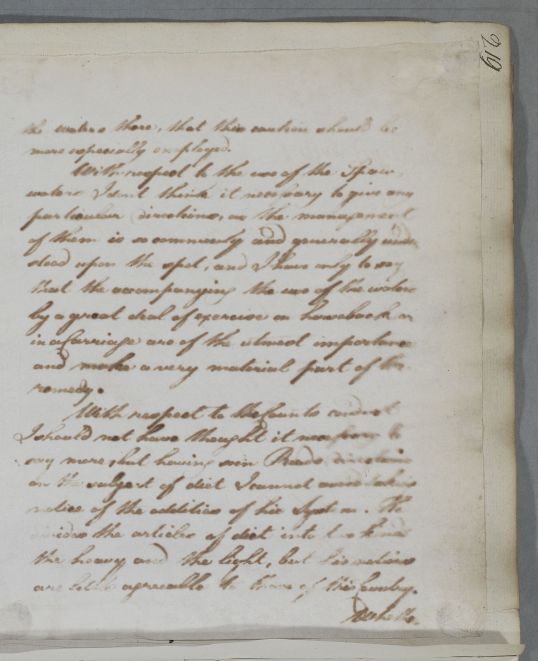 219
the waters there, that this caution should be
more especially employed
With respect to the use of the Spaw
waters I dont think it necessary to give any
particular directions, as the management
of them is so commonly and generally under
stood upon the spot, and I have only to say
that the accompanying the use of the waters
by a great deal of exercise on horseback or
in a Carriage are of the utmost importance
and make a very material part of the
remedy.
With respect to the
I should not have thought it necessary to
say more, but having seen directions
on the subject of diet I cannot avoid taking
notice of the of his System. He
divides the articles of diet into two kinds
the heavy and the light, but his notions
are little agreeable to those of this Country.